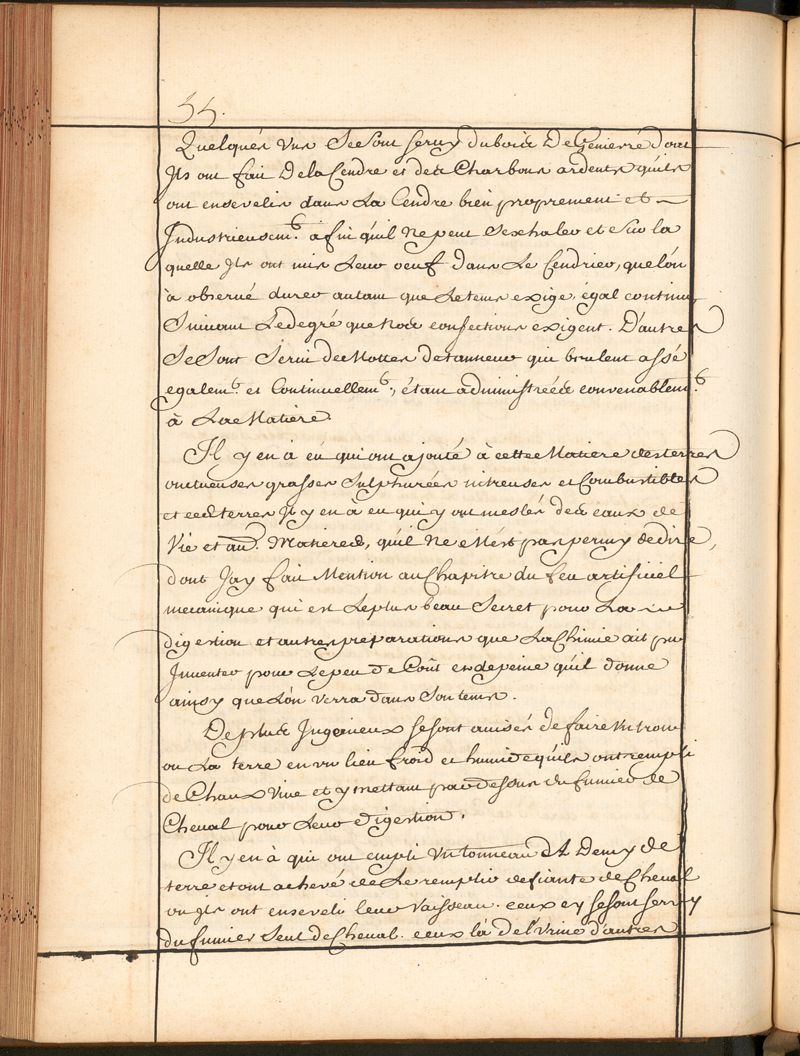 55.
Quelques uns Se Sont servy du bois De Genievre dont
Ils ont fait De la Cendre et des Charbons ardents qu'ils
ont ensevelis dans La Cendre bien proprement et
Industrieusemt. afin qu'il Ne peut S'exhaler et Sur la
quelle Ils ont mis Leur oeuf Dans Le Cendrier, que l'on
à observé durer autant que Le tems exige, égal continu,
Suivant Le degré que Nos confections exigent. D'autres
Se Sont Servi des Mottes de tanneur qui brulent assé
egalemt. et Continuellemt., étant administrées convenablemt.
à La Matière.
Il y en à eu qui ont ajouté à cette Matiere des terres
onctueuses grasses Sulphurées nitreuses et Combustibles
et ces terres Il y en à eu qui y ont meslés des eaux de
Vie et au. Matieres, qu'il Ne M'est pas permy de dire,
dont J'ay fait Mention au Chapitre du feu artificiel
mecanique qui est Le plus beau Secret pour La
digestion et autres preparations que La Chimie ait pu
Inventer pour Le peu de Coût et de peine qu'il donne
ainsy que L'on verra dans Son tems.
De plus Ingenieux se sont avisés de faire Un trou
ou La terre en un lieu froid et humide qu'ils ont rempli
de Chaux Vive et y mettant par Dessus du fumier de
Cheval pour Leur digestion.
Il y en à qui ont empli Un tonneau A Demy de
terre et ont achevé de Le remplir de fiante de Cheval
ou Ils ont enseveli leur Vaisseau. ceux cy se sont servy
du fumier Seul de Cheval. ceux là de l'Urine d'autres